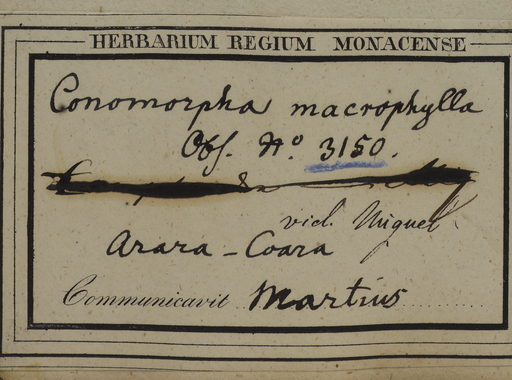 HERBARIUM REGIUM MONACENSE
Conomorpha macrophylla
Obs. No. 3150.
vid. Miquel
Arara-Coara
Communicavit Martius